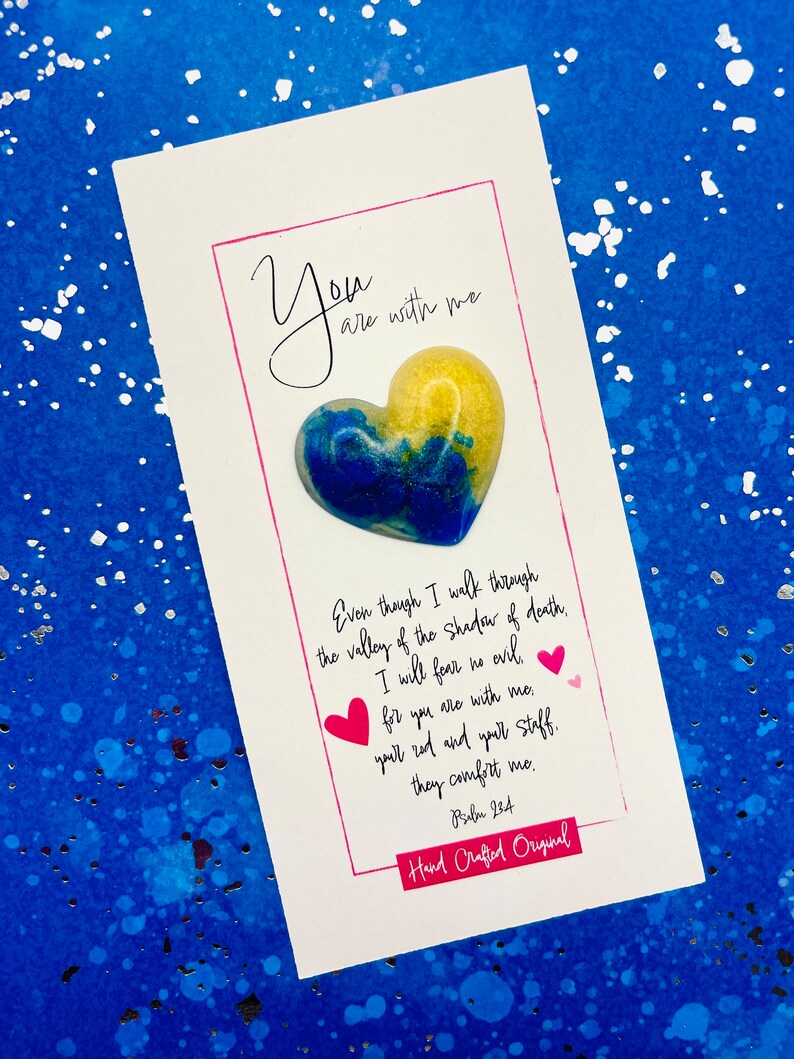 You
are with me
Even though I walk through
the valley of the shadow of death,
I will fear no evil,
for you are with me;
your rod and your staff,
they comfort me.
Psalm 23:4
Hand Crafted Original